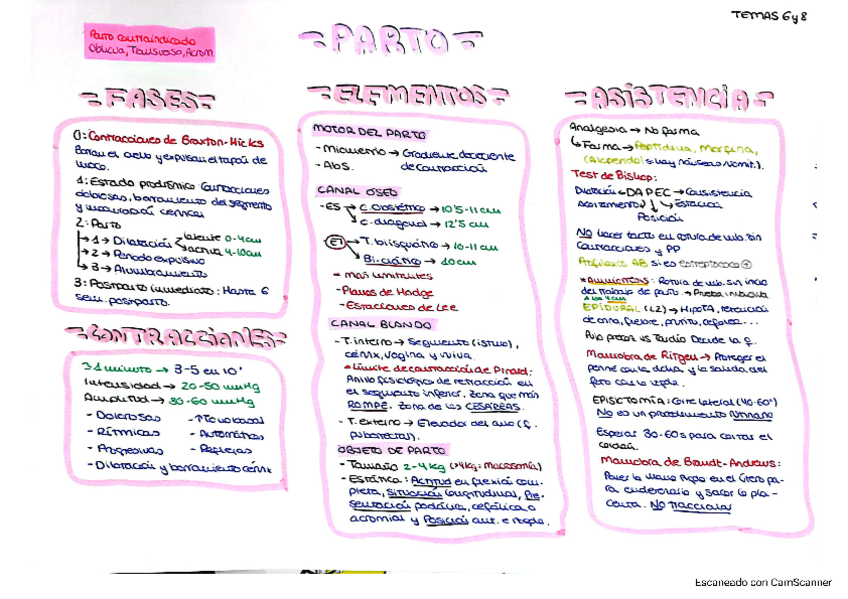 TEMAS 6 y 8
Parto contraindicado
Oblicua, Transversa, Acrom
PARTO
FASES
0: Contracciones de Braxton-Hicks
Borran el cuello y expulsan el tapón de
moco.
1: Estado prodrómico Contracciones
dolorosas, borramiento del segmento
y cervical
2: Parto
1 → Dilatación latente 0-4cm
activa 4-10cm
2 → Periodo expulsivo
3 → Alumbramiento
3: Postparto inmediato: Hasta 6
sem. postparto.
CONTRACCIONES
→ 3-5 en 10'
Intensidad → 20-50 mmHg
Amplitud → 30-60 mmHg
- Dolorosas
- Rítmicas
- Progresivas
- Dilatación y borramiento cérvix
- ↑Tono basal
- Automáticas
- Reflejas
ELEMENTOS
MOTOR DEL PARTO
- Miometrio → Gradiente decreciente
de contracción
- Abs.
CANAL ÓSEO
- ES → C. obstétrico → 10'5-11cm
→ C. diagonal → 12'5cm
EI → T. bisquiático → 10-11cm
→ Bi-ciático → 10cm
= más limitantes
- Planos de Hodge
- Estaciones de Lee
CANAL BLANDO
- T. interno → Segmento (istmo),
cérvix, vagina y vulva.
* Límite de contracción de Pinard:
Anillo fisiológico de retracción en
el segmento inferior. Zona que más
ROMPE. Zona de las CESÁREAS.
- T. externo → Elevador del ano (f.
puborrectal).
OBJETO DE PARTO
- Tamaño 2-4kg (>4kg = Macrosomía)
- Estática: Actitud en flexión com-
pleta, Situación longitudinal, Pre-
sentación podálica, cefálica o
acromial y Posición ant. e
ASISTENCIA
Analgesia → No farma
↳ Farma → Peptidina, Morfina,
si hay náuseas vómit.).
Test de Bishop:
Dilatación ← DAPEC → Consistencia
Acortamiento Estación
Posición
No hacer tacto en rotura de mb. sin
contracciones y PP
Profilaxis AB si es estreptococo +
* Amniotitis: Rotura de mb. sin inicio
del trabajo de parto. → Prueba
A los 4cm
EPIDURAL (L2) → HipoTA, retención
de orina, fiebre, prurito, cefalea...
Pujo precoz vs Tardío Decide la ♀.
Maniobra de Ritgen → Proteger el
periné con la dcha. y la salida del
feto con la
EPISIOTOMÍA: Corte lateral (40-60º)
No es un procedimiento rutinario
Esperar 30-60s para cortar el
cordón.
Maniobra de Brandt-Andrews:
Poner la mano en el útero pa-
ra y sacar la pla-
centa. NO TRACCIONAR
Escaneado con CamScanner